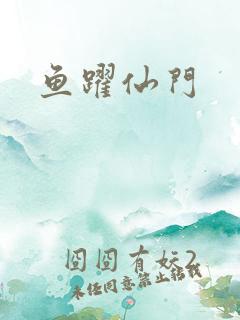 鱼躍仙門
囧囧有妖2
未经同意禁止转载